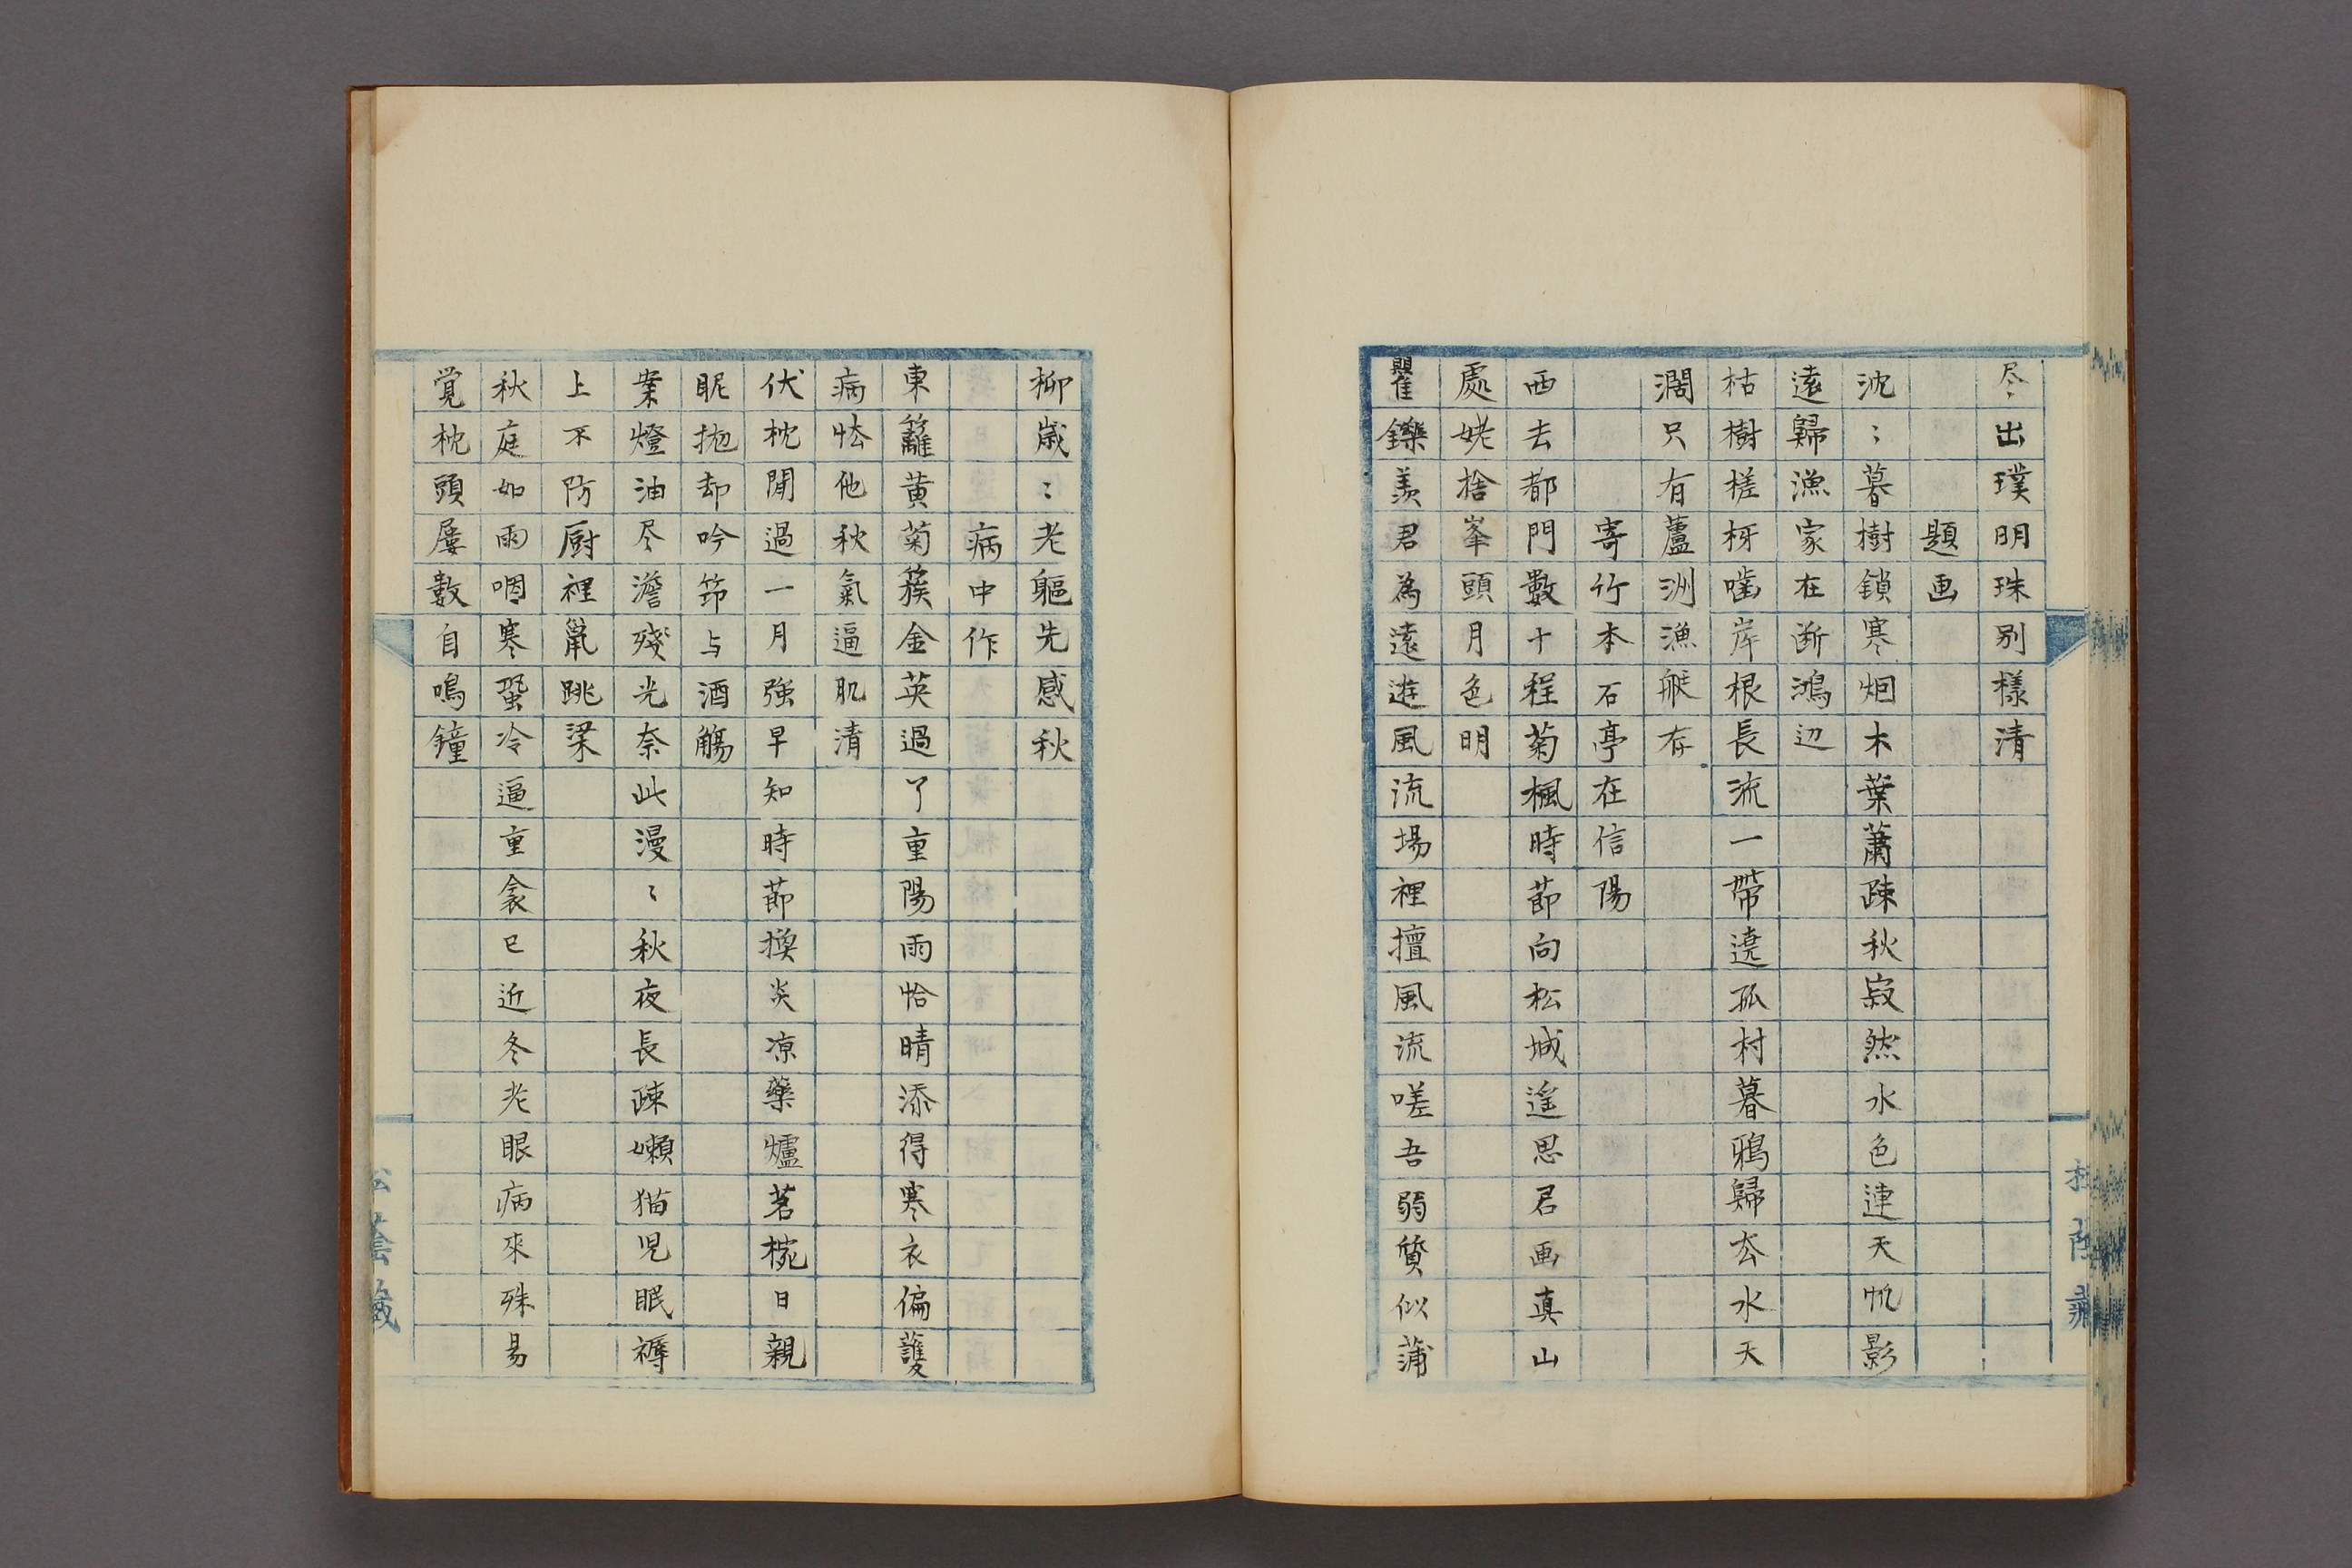 尽〻出璞明珠別樣清
題画
沈〻暮樹鎖寒烟木葉蕭疎秋寂然水色連天帆影
遠歸漁家在断鴻辺
枯樹槎枒嚙岸根長流一帶遶孤村暮鴉歸去水天
濶只有蘆洲漁艇存
寄竹本石亭在信陽
西去都門數十程菊楓時節向松城遙思君画真山
處姥捨峯頭月色明
矍鑠羨君為遠遊風流場裡擅風流嗟吾弱質似蒲
柳歳〻老軀先感秋
病中作
東籬黄菊簇金英過了重陽雨恰晴添得寒衣偏護
病恠他秋氣逼肌清
伏枕閒過一月強早知時節換炎凉藥爐茗椀日親
昵抛却吟笻与酒觴
案燈油尽澹殘光奈此漫〻秋夜長疎嬾猫児眠褥
上不防厨裡鼠跳梁
秋庭如雨咽寒蛩冷逼重衾已近冬老眼病來殊易
覚枕頭屡數自鳴鐘